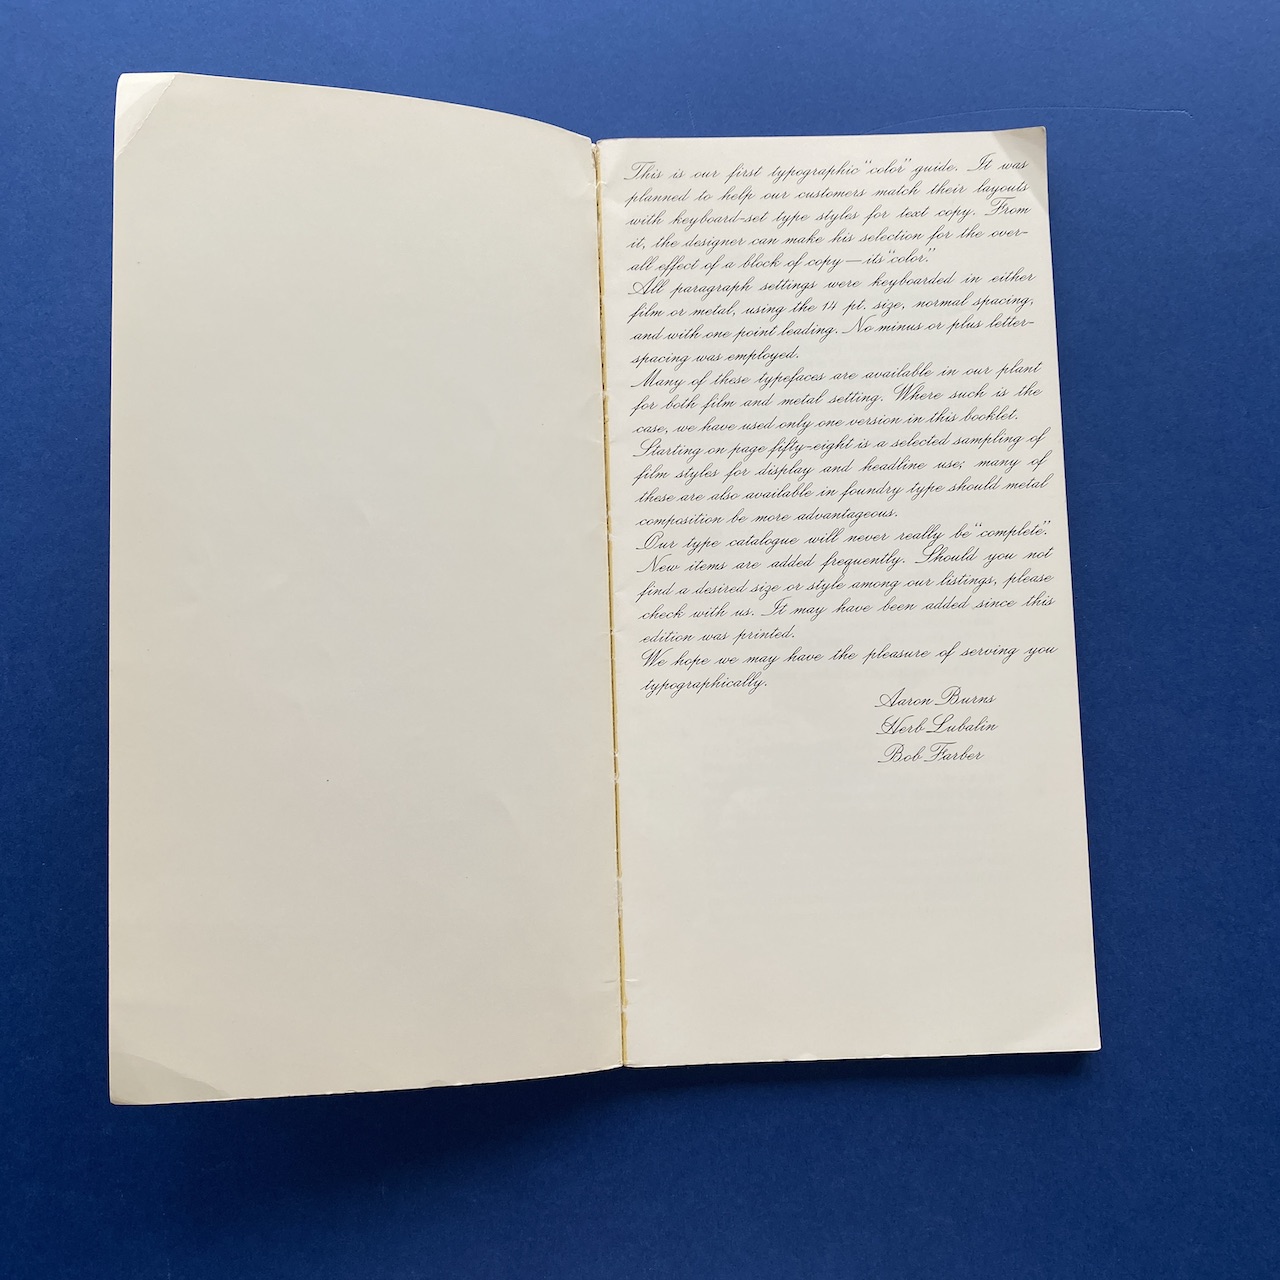 This is our first typographic "color" guide. It was
planned to help our customers match their layouts
with keyboard-set type styles for text copy. From
it, the designer can make his selection for the over-
all effect of a block of copy — its "color."
All paragraph settings were keyboarded in either
film or metal, using the 14 pt. size, normal spacing,
and with one point leading. No minus or plus letter-
spacing was employed.
Many of these typefaces are available in our plant
for both film and metal setting. Where such is the
case, we have used only one version in this booklet.
Starting on page fifty-eight is a selected sampling of
film styles for display and headline use; many of
these are also available in foundry type should metal
composition be more advantageous.
Our type catalogue will never really be "complete".
New items are added frequently. Should you not
find a desired size or style among our listings, please
check with us. It may have been added since this
edition was printed.
We hope we may have the pleasure of serving you
typographically.
Aaron Burns
Herb Lubalin
Bob Farber